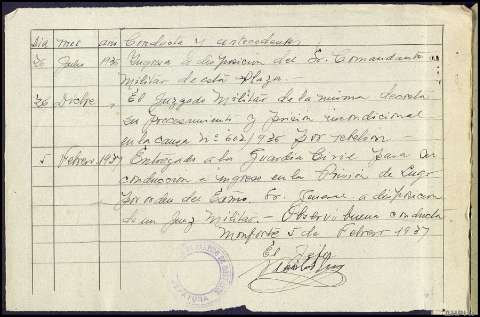 Día mes año Conducta y antecedentes
26 Julio 1936 Ingresa a disposición del Sr. Comandante
Militar de esta Plaza.-
26 Dicbre, El Juzgado Militar de la misma decreta
su procesamiento y prisión incondicional
en la causa nº 602/936 por rebelión -
5 Febrero 1937 - Entregado a la Guardia Civil para su
conducción e ingreso en la Prisión de Lugo
por orden del Excmo. Sr. General a disposición
de un Juez Militar.- Observó buena conducta
Monforte 5 de Febrero 1937
El Jefe
JEFATURA